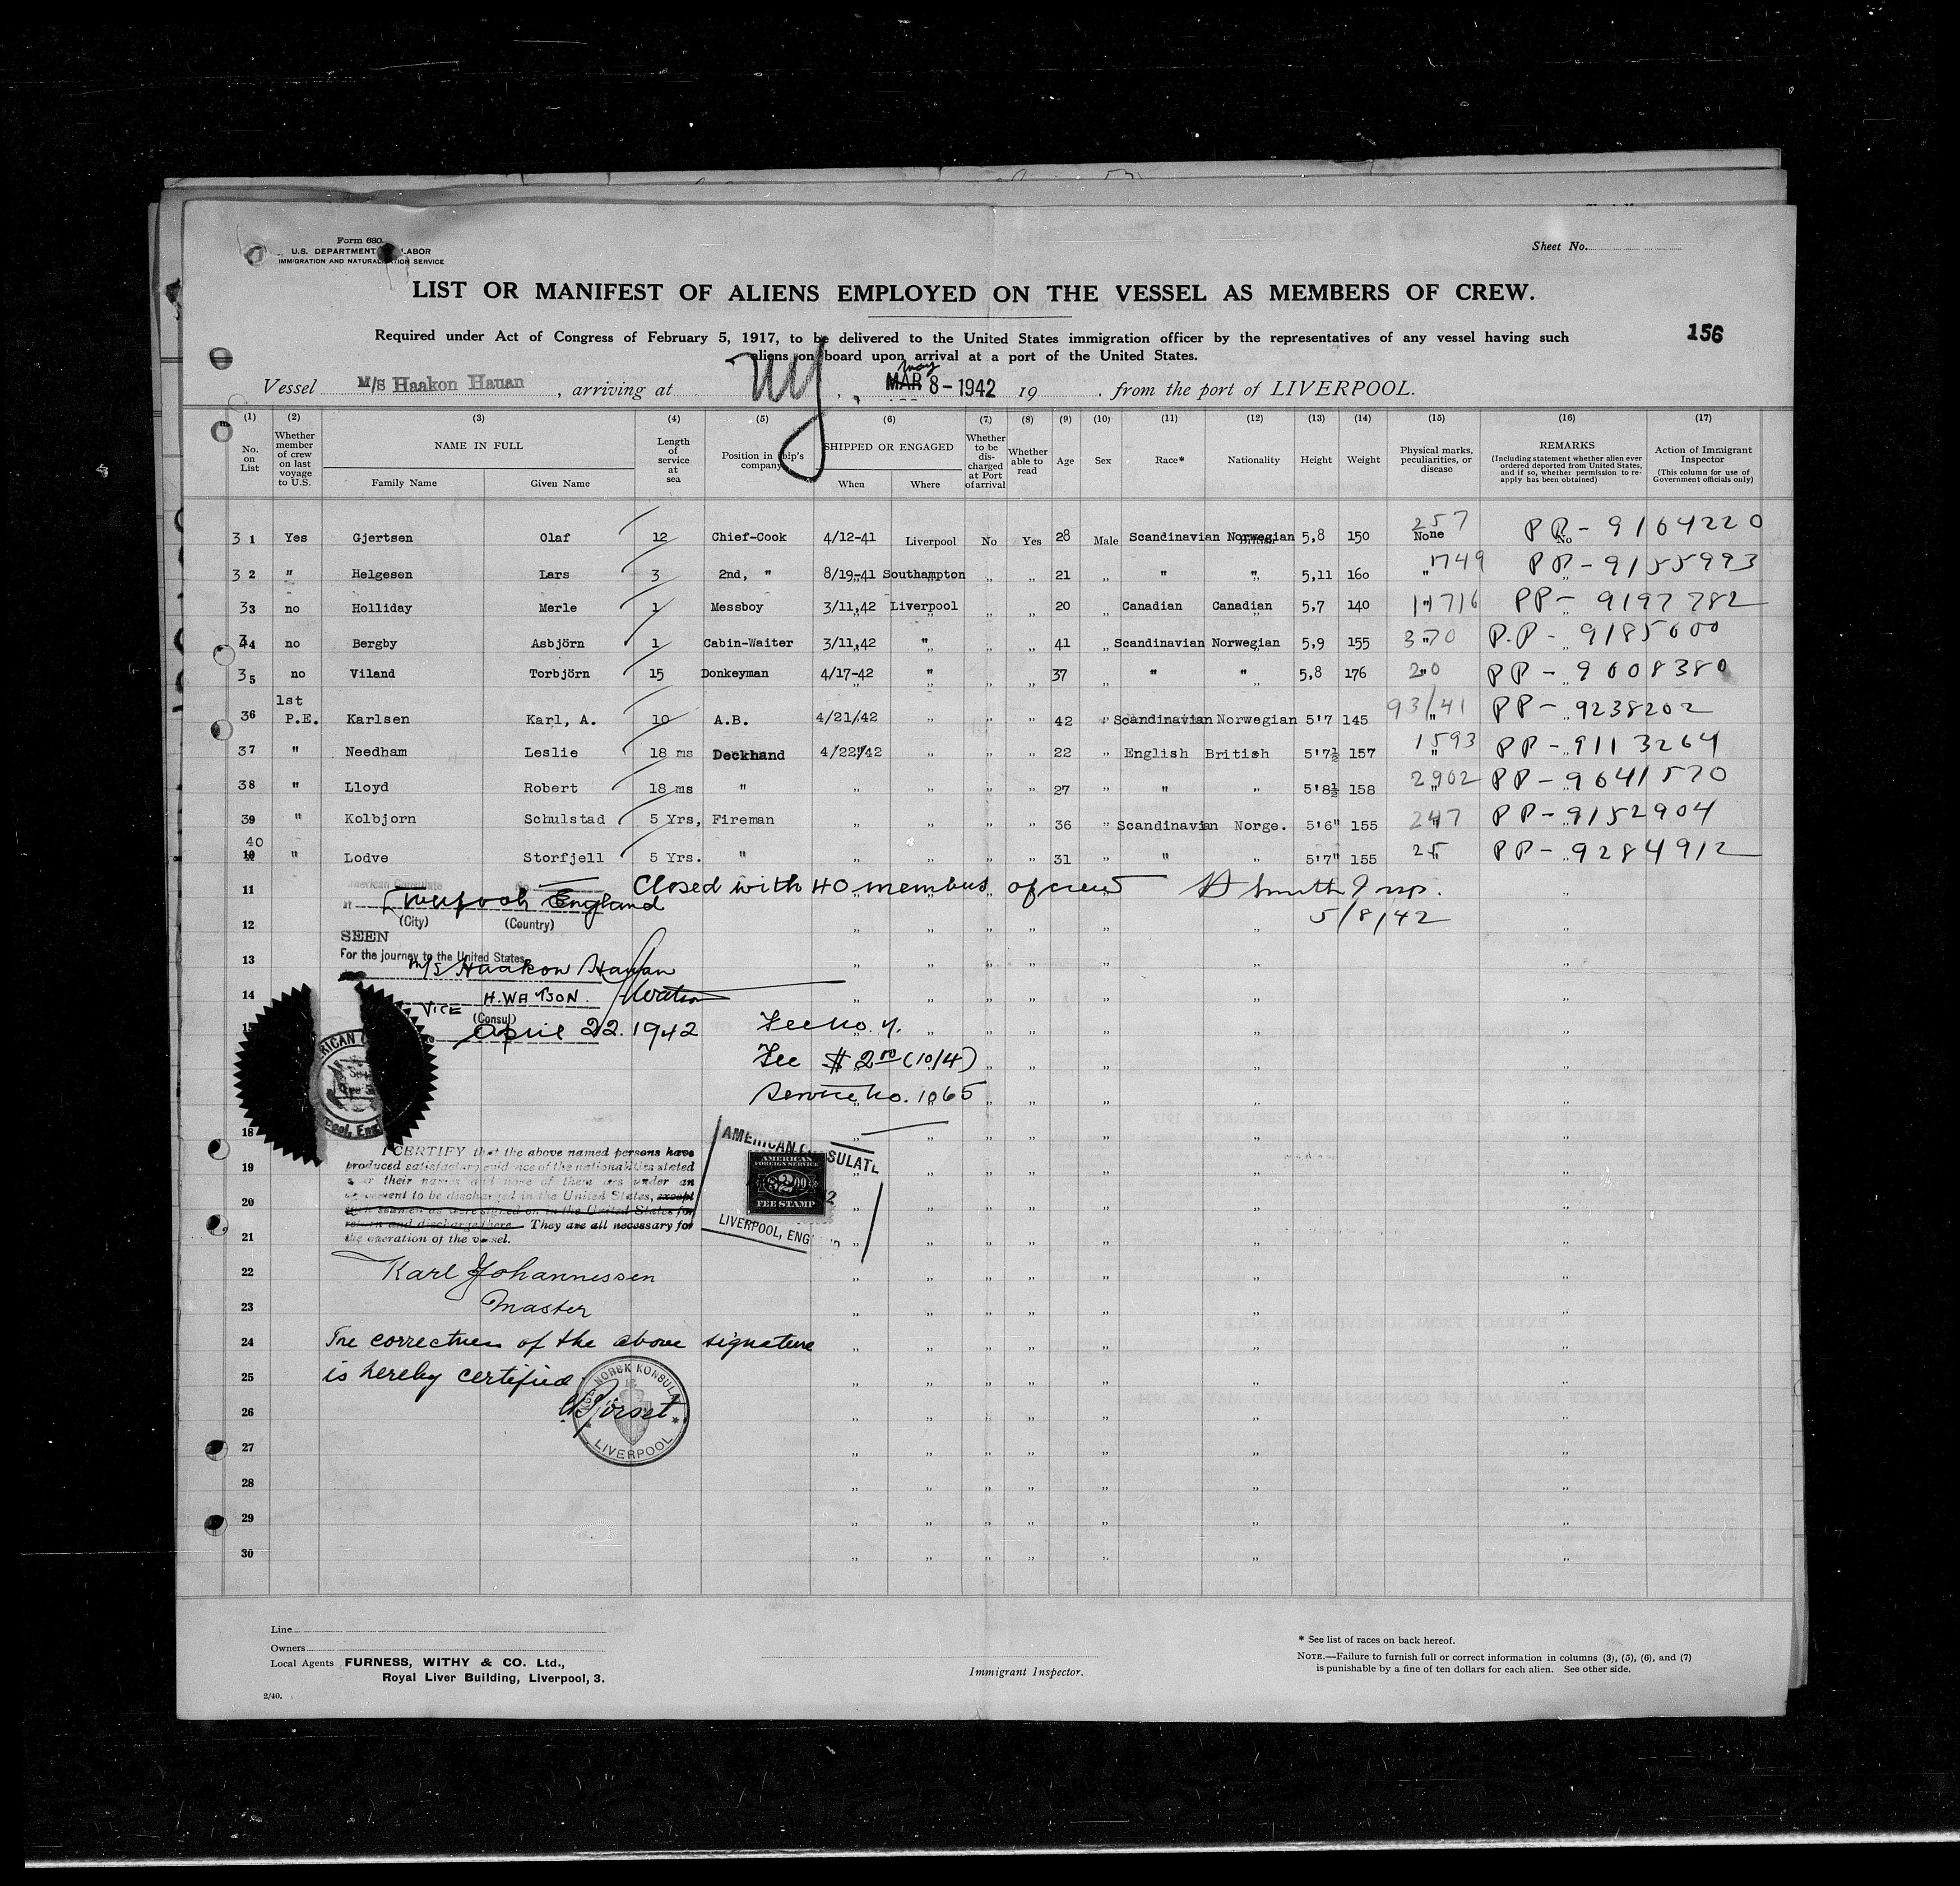 Form 680
U.S. DEPARTMENT LABOR
IMMIGRATION AND NATURALIZATION SERVICE
Sheet No.
LIST OR MANIFEST OF ALIENS EMPLOYED ON THE VESSEL AS MEMBERS OF CREW.
Required under Act of Congress of February 5, 1917, to be delivered to the United States immigration officer by the representatives of any vessel having such
aliens on board upon arrival at a port of the United States.
156
Vessel M/S Haakon Hauan, arriving at NY, MAR May 8-1942 19 . from the port of LIVERPOOL.
(1) (2) (3) (4) (5) (6) (7) (8) (9) (10) (11) (12) (13) (14) (15) (16) (17)
No. on List
Whether member of crew on last voyage to U.S.
NAME IN FULL
Family Name Given Name
Length of service at sea
Position in ship's company
SHIPPED OR ENGAGED
When Where
Whether to be discharged at Port of arrival
Whether able to read
Age Sex Race* Nationality Height Weight
Physical marks, peculiarities, or disease
REMARKS
(Including statement whether alien ever ordered deported from United States, and if so, whether permission to re-apply has been obtained)
Action of Immigrant Inspector
(This column for use of Government officials only)
31 Yes Gjertsen Olaf 12 Chief-Cook 4/12-41 Liverpool No Yes 28 Male Scandinavian Norwegian British 5,8 150 257 None No PP - 9164220
32 " Helgesen Lars 3 2nd, " 8/19-41 Southampton " " 21 " " " 5,11 160 1749 " PP - 9155993
33 no Holliday Merle 1 Messboy 3/11,42 Liverpool " " 20 " Canadian Canadian 5,7 140 11716 PP - 9197782
34 no Bergby Asbjörn 1 Cabin-Waiter 3/11,42 " " " 41 " Scandinavian Norwegian 5,9 155 370 P.P - 9185600
35 no Viland Torbjörn 15 Donkeyman 4/17-42 " " " 37 " " " 5,8 176 20 PP - 9008380
36 1st P.E. Karlsen Karl, A. 10 A.B. 4/21/42 " " " 42 " Scandinavian Norwegian 5'7 145 93/41 PP - 9238202
37 " Needham Leslie 18 ms Deckhand 4/22/42 " " " 22 " English British 5'7½ 157 1593 PP - 9113264
38 " Lloyd Robert 18 ms " " " " " 27 " " " 5'8½ 158 2902 PP - 9641570
39 " Kolbjorn Schulstad 5 Yrs, Fireman " " " " 36 " Scandinavian Norge. 5'6" 155 247 PP - 9152904
40 10 " Lodve Storfjell 5 Yrs. " " " " " 31 " " " 5'7" 155 25 PP - 9284912
11 Closed with 40 members of crew H Smith Insp.
5/8/42
American Consulate
at Liverpool England
(City) (Country)
12
SEEN
13 For the journey to the United States
M/S Haakon Hauan
14 VICE H. WATSON. HWatson
(Consul)
15 April 22. 1942
Fee No. 4.
Fee $2.00 (10/4)
Service No. 1065
18
AMERICAN CONSULATE
AMERICAN
FOREIGN SERVICE
$2.00
FEE STAMP
LIVERPOOL, ENG
19 I CERTIFY that the above named persons have
produced satisfactory evidence of the nationalities stated
over their names and none of them are under an
20 agreement to be discharged in the United States, except
such seamen as were signed on in the United States for
return and discharge there. They are all necessary for
21 the operation of the vessel.
22 Karl Johannessen
23 Master
24 The correctness of the above signature
25 is hereby certified
NORSK KONSULAT
LIVERPOOL
26
27
28
29
30
Line
Owners
Local Agents FURNESS, WITHY & CO. Ltd.,
Royal Liver Building, Liverpool, 3.
2/40.
Immigrant Inspector.
* See list of races on back hereof.
NOTE.—Failure to furnish full or correct information in columns (3), (5), (6), and (7)
is punishable by a fine of ten dollars for each alien. See other side.